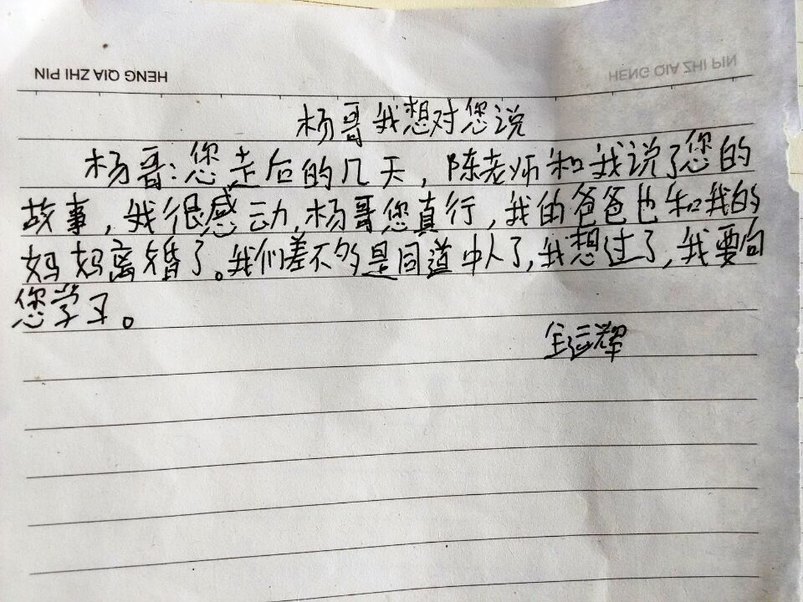 HENG QIA ZHI PIN HENG QIA ZHI PIN
杨哥我想对您说
杨哥:您走后的几天,陈老师和我说了您的
故事,我很感动,杨哥您真行,我的爸爸也和我的
妈妈离婚了。我们差不多是同道中人了,我想过了,我要向
您学习。
全运辉